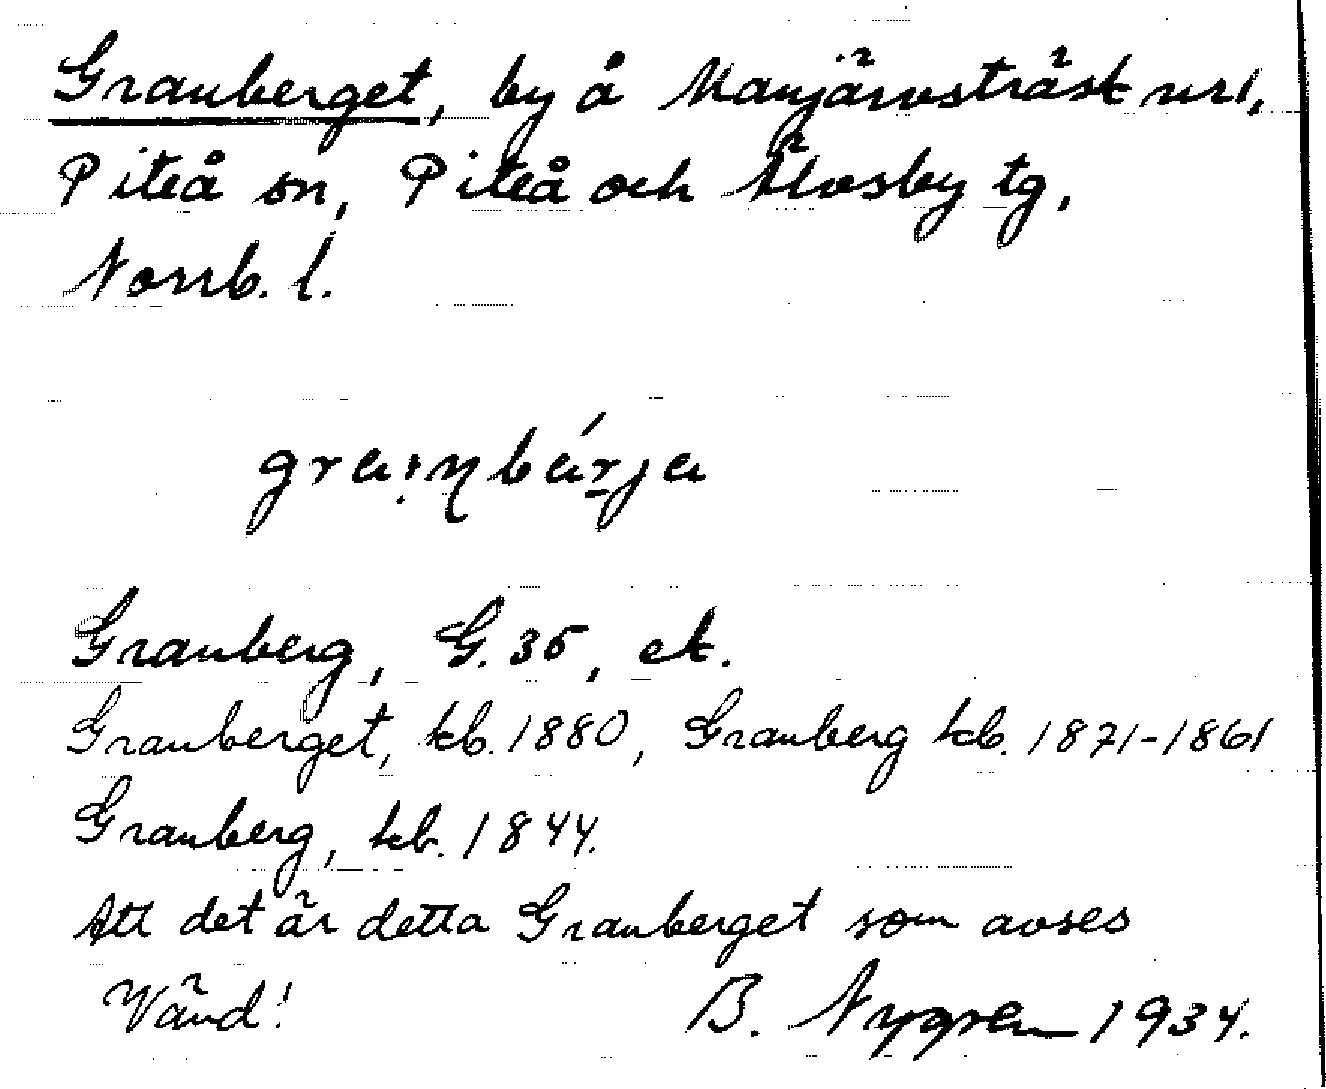 Granberget, by å Manjärvsträsk nr 1,
Piteå sn, Piteå och Älvsby tg,
Norrb. l.
Granberg, G. 35, ek.
Granberget, kb. 1880, Granberg kb. 1871-1861
Granberg, kb. 1844.
Att det är detta Granberget som avses
Vänd! B. Nygren 1934.